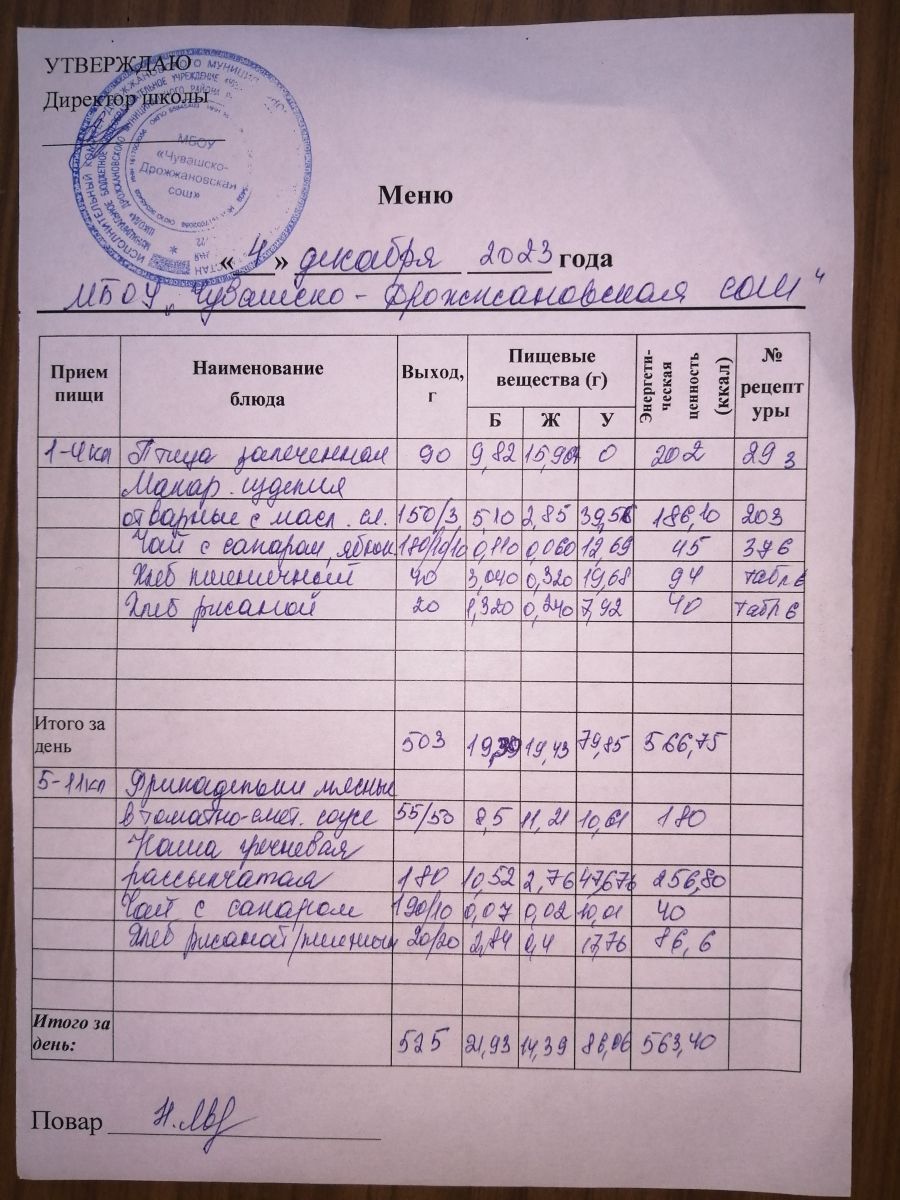 УТВЕРЖДАЮ
Директор школы
МБОУ
«Чувашско-
Дрожжановская
сош»
Меню
« 4 » декабря 2023 года
МБОУ „Чувашско-Дрожжановская сош"
Прием пищи Наименование блюда Выход, г Пищевые вещества (г) Энергети-ческая ценность (ккал) № рецепт уры
Б Ж У
1-4кл Птица запеченная 90 9,82 0 202 293
Макар. изделия
отварные с масл. сл. 150/3 5,10 2,85 186,10 203
Чай с сахаром, яблок 180/10/10 0,110 0,060 12,69 45 376
Хлеб пшеничный 40 3,040 0,320 19,68 94 табл 6
Хлеб ржаной 20 1,320 0,240 7,92 40 табл 6
Итого за день 503 19,39 19,43 79,85 566,75
5-11кл Фрикадельки мясные
в томатно-смет. соусе 55/50 8,5 11,21 10,61 180
Каша гречневая
рассыпчатая 180 10,52 2,76 47,676 256,80
Чай с сахаром 190/10 0,07 0,02 10,01 40
Хлеб ржаной/пшеничн 20/20 2,84 0,4 17,76 86,6
Итого за день: 525 21,93 14,39 86,06 563,40
Повар